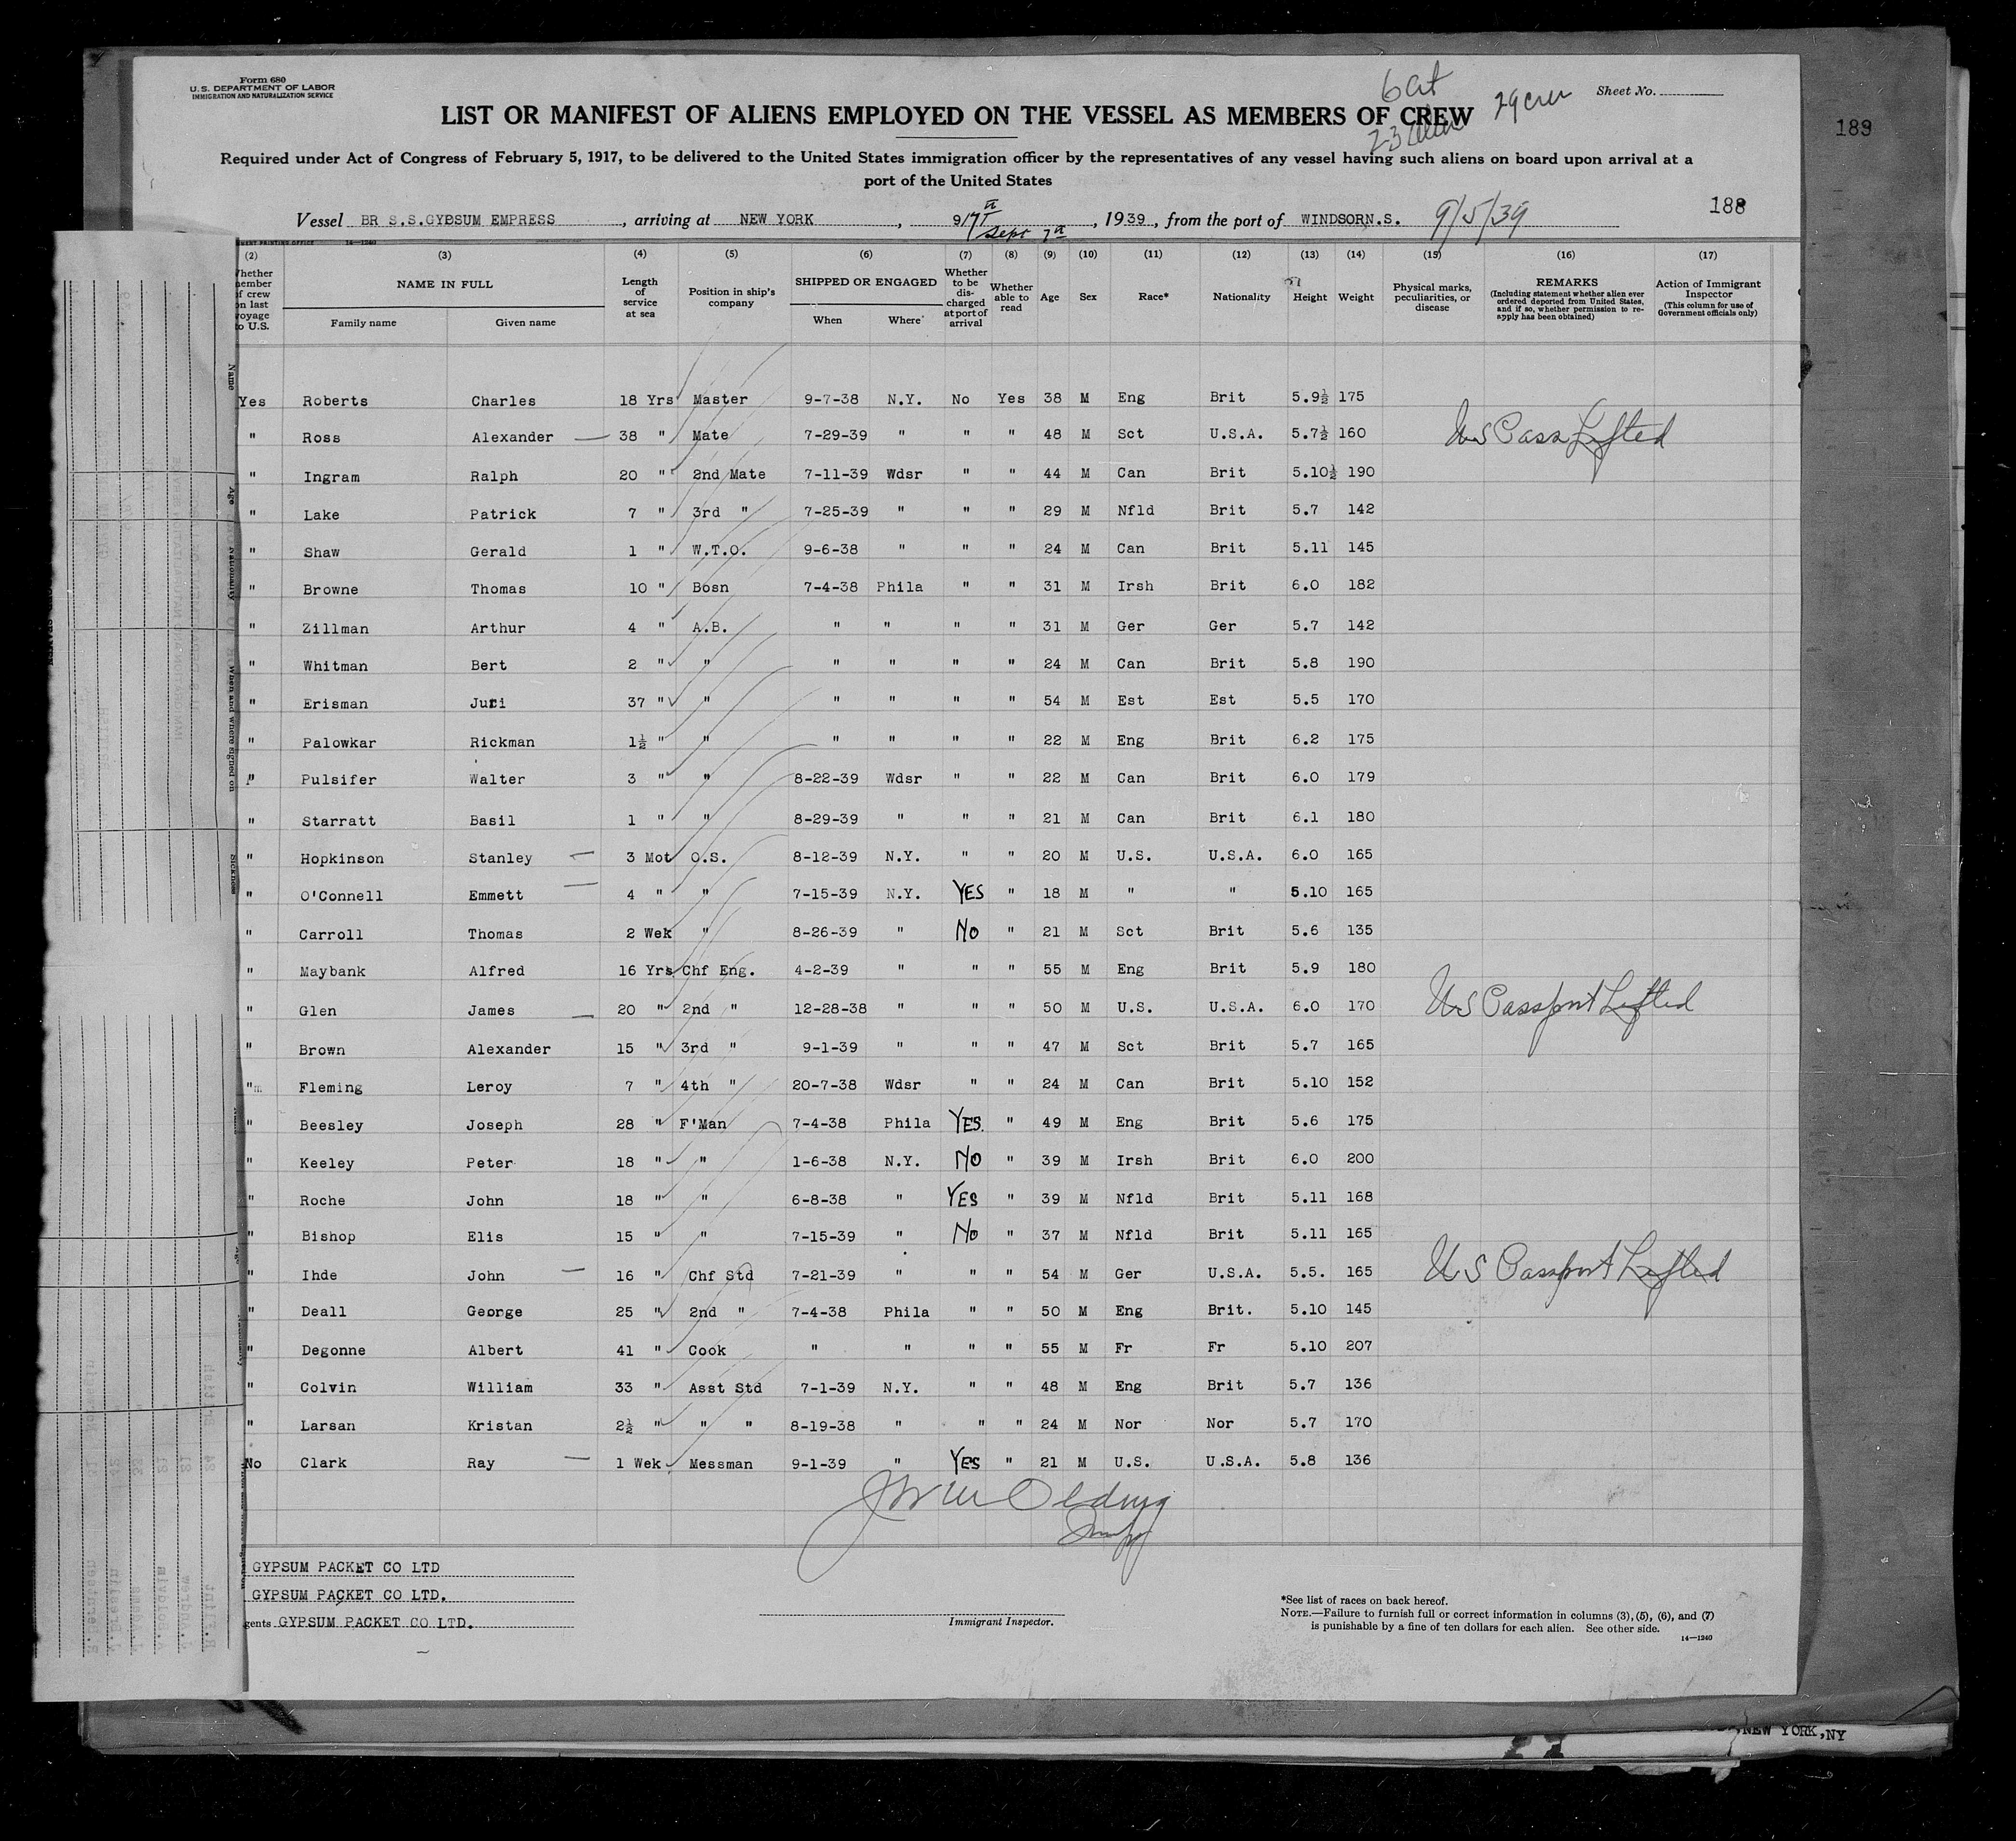 Form 680
U.S. DEPARTMENT OF LABOR
IMMIGRATION AND NATURALIZATION SERVICE
6 Cit
29 crew
23
Sheet No.
LIST OR MANIFEST OF ALIENS EMPLOYED ON THE VESSEL AS MEMBERS OF CREW
189
Required under Act of Congress of February 5, 1917, to be delivered to the United States immigration officer by the representatives of any vessel having such aliens on board upon arrival at a
port of the United States
188
Vessel BR S.S.GYPSUM EMPRESS, arriving at NEW YORK, 9/7 Sept 7th, 1939, from the port of WINDSOR N.S. 9/5/39
14-1240
(2) (3) (4) (5) (6) (7) (8) (9) (10) (11) (12) (13) (14) (15) (16) (17)
Whether member of crew on last voyage to U.S. NAME IN FULL Family name Given name Length of service at sea Position in ship's company SHIPPED OR ENGAGED When Where Whether to be discharged at port of arrival Whether able to read Age Sex Race* Nationality Height Weight Physical marks, peculiarities, or disease REMARKS (Including statement whether alien ever ordered deported from United States, and if so, whether permission to re-apply has been obtained) Action of Immigrant Inspector (This column for use of Government officials only)
Yes Roberts Charles 18 Yrs Master 9-7-38 N.Y. No Yes 38 M Eng Brit 5.9½ 175
" Ross Alexander — 38 " Mate 7-29-39 " " " 48 M Sct U.S.A. 5.7½ 160 US Pass Lifted
" Ingram Ralph 20 " 2nd Mate 7-11-39 Wdsr " " 44 M Can Brit 5.10½ 190
" Lake Patrick 7 " 3rd " 7-25-39 " " " 29 M Nfld Brit 5.7 142
" Shaw Gerald 1 " W.T.O. 9-6-38 " " " 24 M Can Brit 5.11 145
" Browne Thomas 10 " Bosn 7-4-38 Phila " " 31 M Irsh Brit 6.0 182
" Zillman Arthur 4 " A.B. " " " " 31 M Ger Ger 5.7 142
" Whitman Bert 2 " " " " " " 24 M Can Brit 5.8 190
" Erisman Juri 37 " " " " " " 54 M Est Est 5.5 170
" Palowkar Rickman 1½ " " " " " " 22 M Eng Brit 6.2 175
" Pulsifer Walter 3 " " 8-22-39 Wdsr " " 22 M Can Brit 6.0 179
" Starratt Basil 1 " " 8-29-39 " " " 21 M Can Brit 6.1 180
" Hopkinson Stanley — 3 Mot O.S. 8-12-39 N.Y. " " 20 M U.S. U.S.A. 6.0 165
" O'Connell Emmett — 4 " " 7-15-39 N.Y. YES " 18 M " " 5.10 165
" Carroll Thomas 2 Wek " 8-26-39 " No " 21 M Sct Brit 5.6 135
" Maybank Alfred 16 Yrs Chf Eng. 4-2-39 " " " 55 M Eng Brit 5.9 180
" Glen James — 20 " 2nd " 12-28-38 " " " 50 M U.S. U.S.A. 6.0 170 US Passport Lifted
" Brown Alexander 15 " 3rd " 9-1-39 " " " 47 M Sct Brit 5.7 165
" Fleming Leroy 7 " 4th " 20-7-38 Wdsr " " 24 M Can Brit 5.10 152
" Beesley Joseph 28 " F'Man 7-4-38 Phila YES. " 49 M Eng Brit 5.6 175
" Keeley Peter 18 " " 1-6-38 N.Y. NO " 39 M Irsh Brit 6.0 200
" Roche John 18 " " 6-8-38 " YES " 39 M Nfld Brit 5.11 168
" Bishop Elis 15 " " 7-15-39 " No " 37 M Nfld Brit 5.11 165
" Ihde John — 16 " Chf Std 7-21-39 " " " 54 M Ger U.S.A. 5.5. 165 US Passport Lifted
" Deall George 25 " 2nd " 7-4-38 Phila " " 50 M Eng Brit. 5.10 145
" Degonne Albert 41 " Cook " " " " 55 M Fr Fr 5.10 207
" Colvin William 33 " Asst Std 7-1-39 N.Y. " " 48 M Eng Brit 5.7 136
" Larsan Kristan 2½ " " " 8-19-38 " " " 24 M Nor Nor 5.7 170
No Clark Ray — 1 Wek Messman 9-1-39 " YES " 21 M U.S. U.S.A. 5.8 136
GYPSUM PACKET CO LTD
GYPSUM PACKET CO LTD.
gents GYPSUM PACKET CO LTD.
Immigrant Inspector.
*See list of races on back hereof.
NOTE.—Failure to furnish full or correct information in columns (3), (5), (6), and (7)
is punishable by a fine of ten dollars for each alien. See other side.
14-1240
,NEW YORK,NY